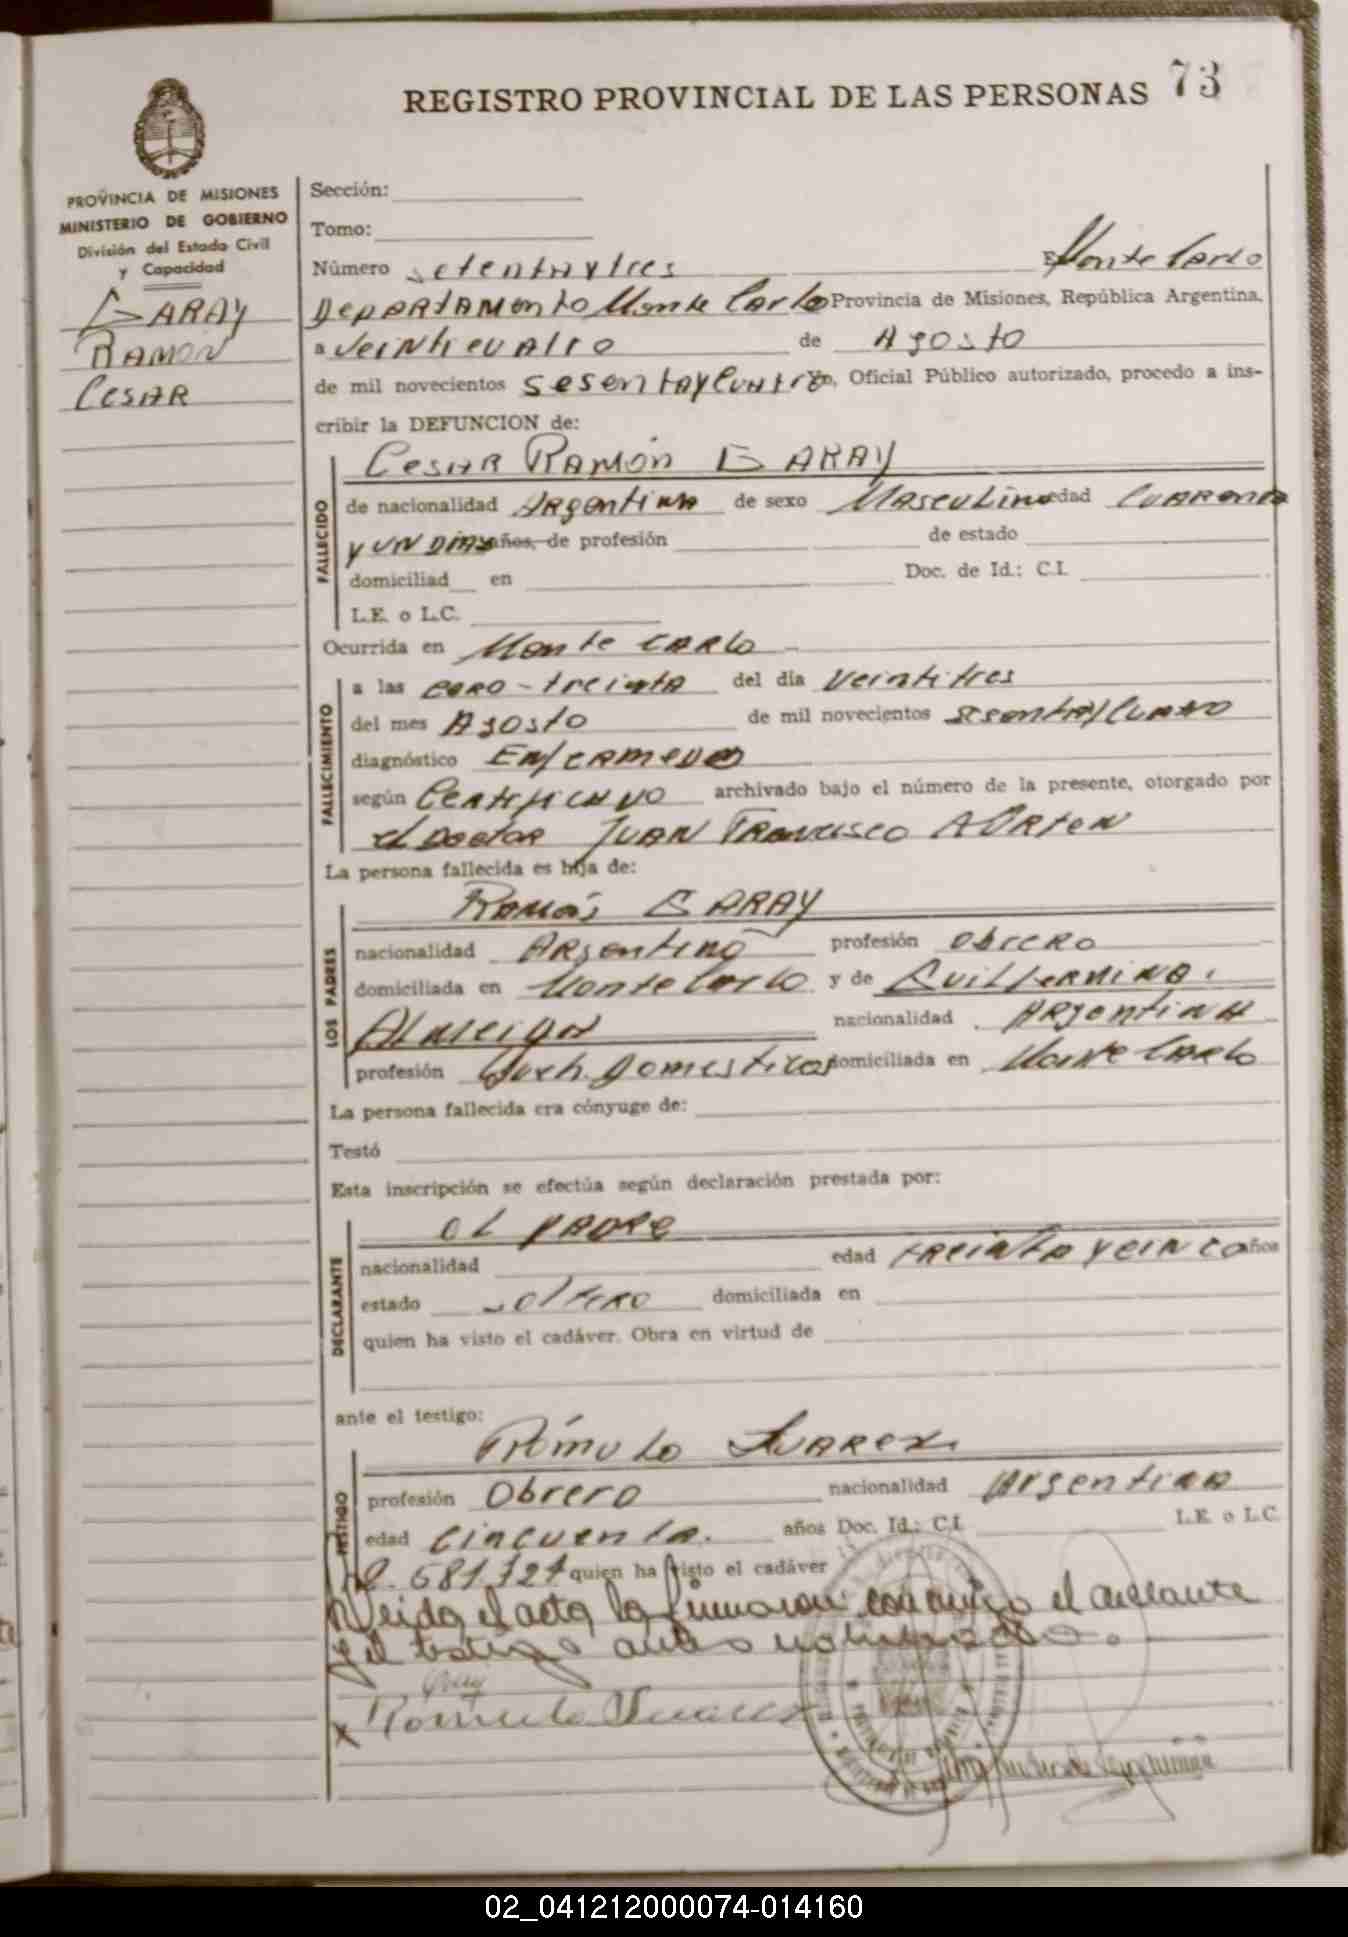 REGISTRO PROVINCIAL DE LAS PERSONAS 73
PROVINCIA DE MISIONES
MINISTERIO DE GOBIERNO
División del Estado Civil
y Capacidad
GARAY
RAMON
CESAR
Sección:
Tomo:
Número setentaytres En Monte Carlo
Departamento Monte Carlo Provincia de Misiones, República Argentina,
a veinticuatro de Agosto
de mil novecientos sesentaycuatro, Oficial Público autorizado, procedo a ins-
cribir la DEFUNCION de:
Cesar Ramón GARAY
FALLECIDO
de nacionalidad Argentina de sexo Masculino edad Cuarenta
y un dias años, de profesión de estado
domiciliad en Doc. de Id.: C.I.
L.E. o L.C.
Ocurrida en Monte Carlo
FALLECIMIENTO
a las cero-treinta del día veintitres
del mes Agosto de mil novecientos sesentaycuatro
diagnóstico Enfermedad
según Certificado archivado bajo el número de la presente, otorgado por
el Doctor Juan Francisco
La persona fallecida es hija de:
LOS PADRES
Ramón GARAY
nacionalidad Argentino profesión obrero
domiciliada en Monte Carlo y de Guillermina
nacionalidad Argentina
profesión Queh. Domesticos domiciliada en Monte Carlo
La persona fallecida era cónyuge de:
Testó
Esta inscripción se efectúa según declaración prestada por:
DECLARANTE
el padre
nacionalidad edad treinta y cinco años
estado soltero domiciliada en
quien ha visto el cadáver. Obra en virtud de
ante el testigo:
TESTIGO
Rómulo Suarez
profesión Obrero nacionalidad Argentina
edad cincuenta. años Doc. Id.: C.I. L.E. o L.C.
quien ha visto el cadáver
Leida el acta la firmaron conmigo el declarante
y el testigo antes nombrado.
x Romulo Suarez
02_041212000074-014160